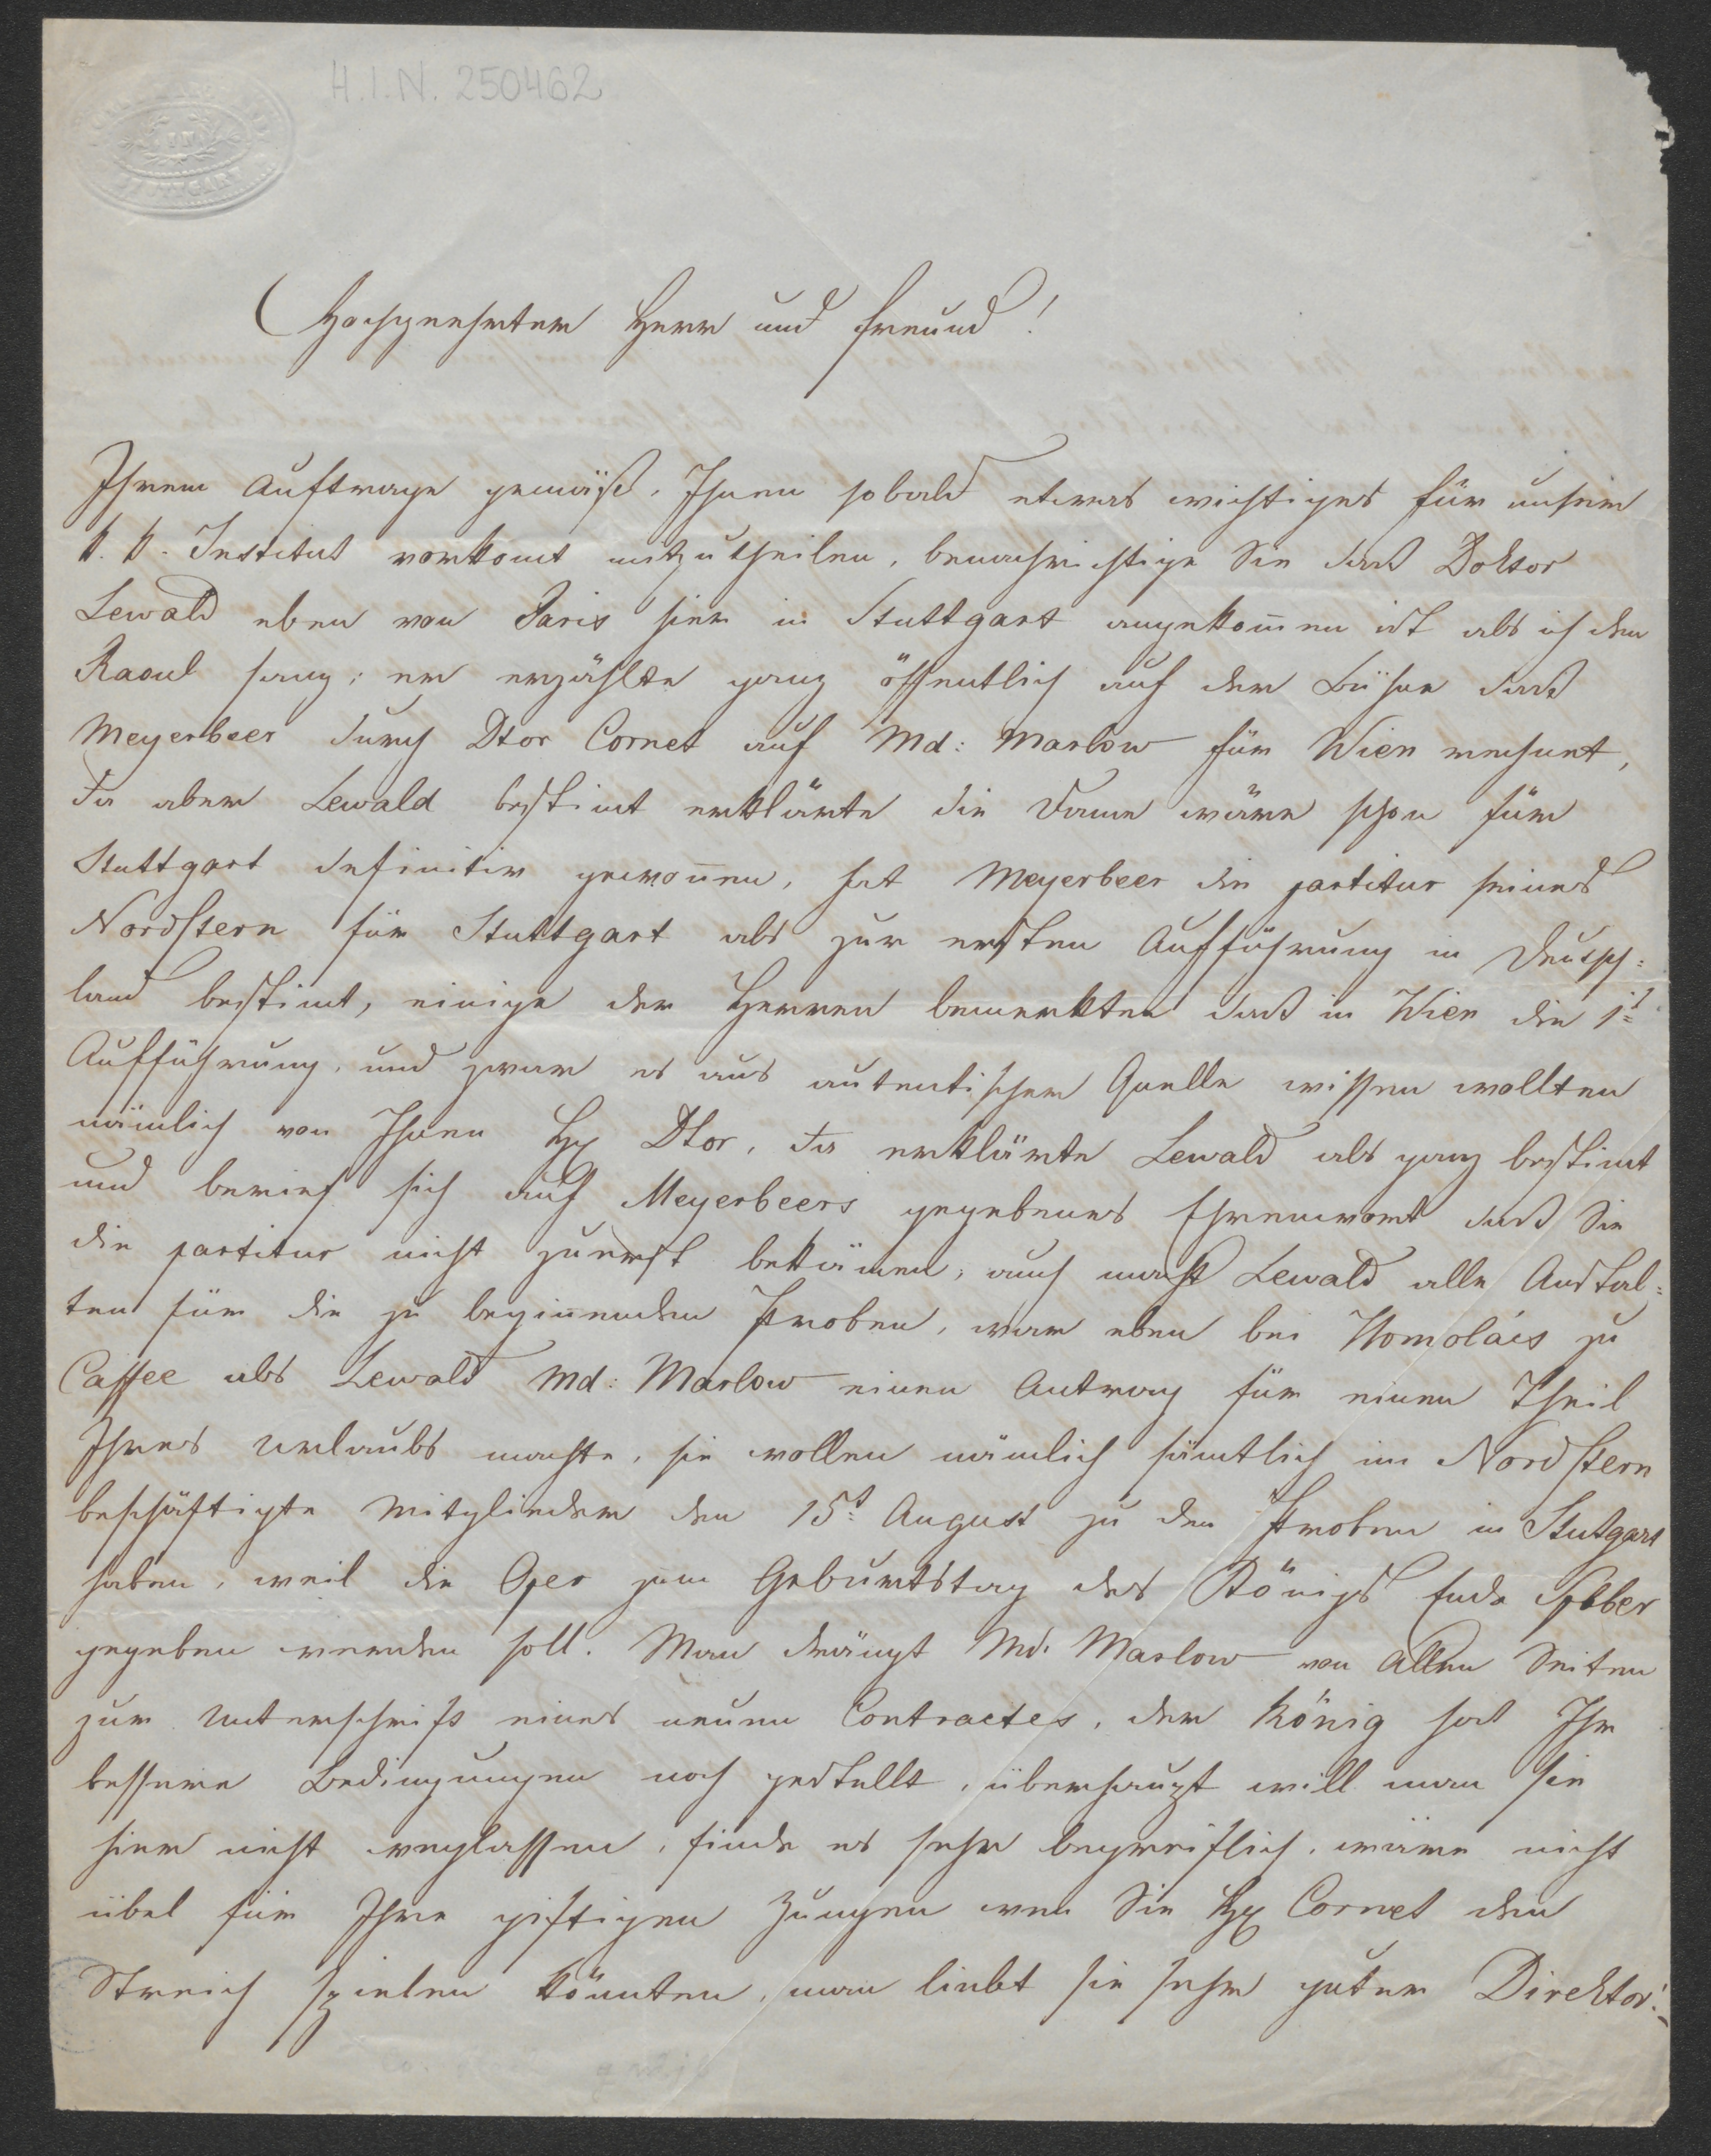 H.I.N. 250462
STUTTGART
Hochgeehrter Herr und Freund!
Ihrem Auftrage gemäß, Ihnen sobald etwas wichtiges für unser
k. k. Institut vorkomt mitzutheilen, benachrichtige Sie daß Doktor
Lewald eben von Paris hier in Stuttgart angekom̄en ist als ich den
Raoul sang; er erzählte ganz öffentlich auf der Bühne daß
Meyerbeer durch Dtor Cornet auf Md: Marlow für Wien rechnet,
da aber Lewald bestimt erklärte die Dame wäre schon für
Stuttgart definitiv gewon̄en, hat Meyerbeer die partitur seines
Nordstern für Stuttgart als zur ersten Aufführung in Deutsch=
land bestimt, einige der Herren bemerkten daß in Wien die 1t
Aufführung, und zwar es aus autentischer Quelle wissen wollten
nämlich von Ihnen Hr Dtor, da erklärte Lewald als ganz bestimt
und berief sich auf Meyerbeers gegebenes Ehrenwort daß Sie
die partitur nicht zuerst bekämen, auch macht Lewald alle Anstal=
ten für die zu begin̄enden Proben, war eben bei Homolács zu
Caffee als Lewald Md: Marlow einen Antrag für einen Theil
Ihres Urlaubs machte, sie wollen nämlich sämtlich im Nordstern
beschäftigte Mitglieder den 15t August zu den Proben in Stutgart
haben, weil die Oper zum Geburtstag des Königs Ende Septber
gegeben werden soll. Man drängt Md: Marlow von allen Seiten
zur Unterschrift eines neuen Contractes, der König hat Ihr
bessere Bedingungen noch gestellt, überhaupt will man sie
hier nicht weglassen, finde es sehr begreiflich, wäre nicht
übel für Ihre giftigen Zungen wen Sie Hr Cornet den
Streich spielen könnten, man liebt sie sehr guter Direktor!